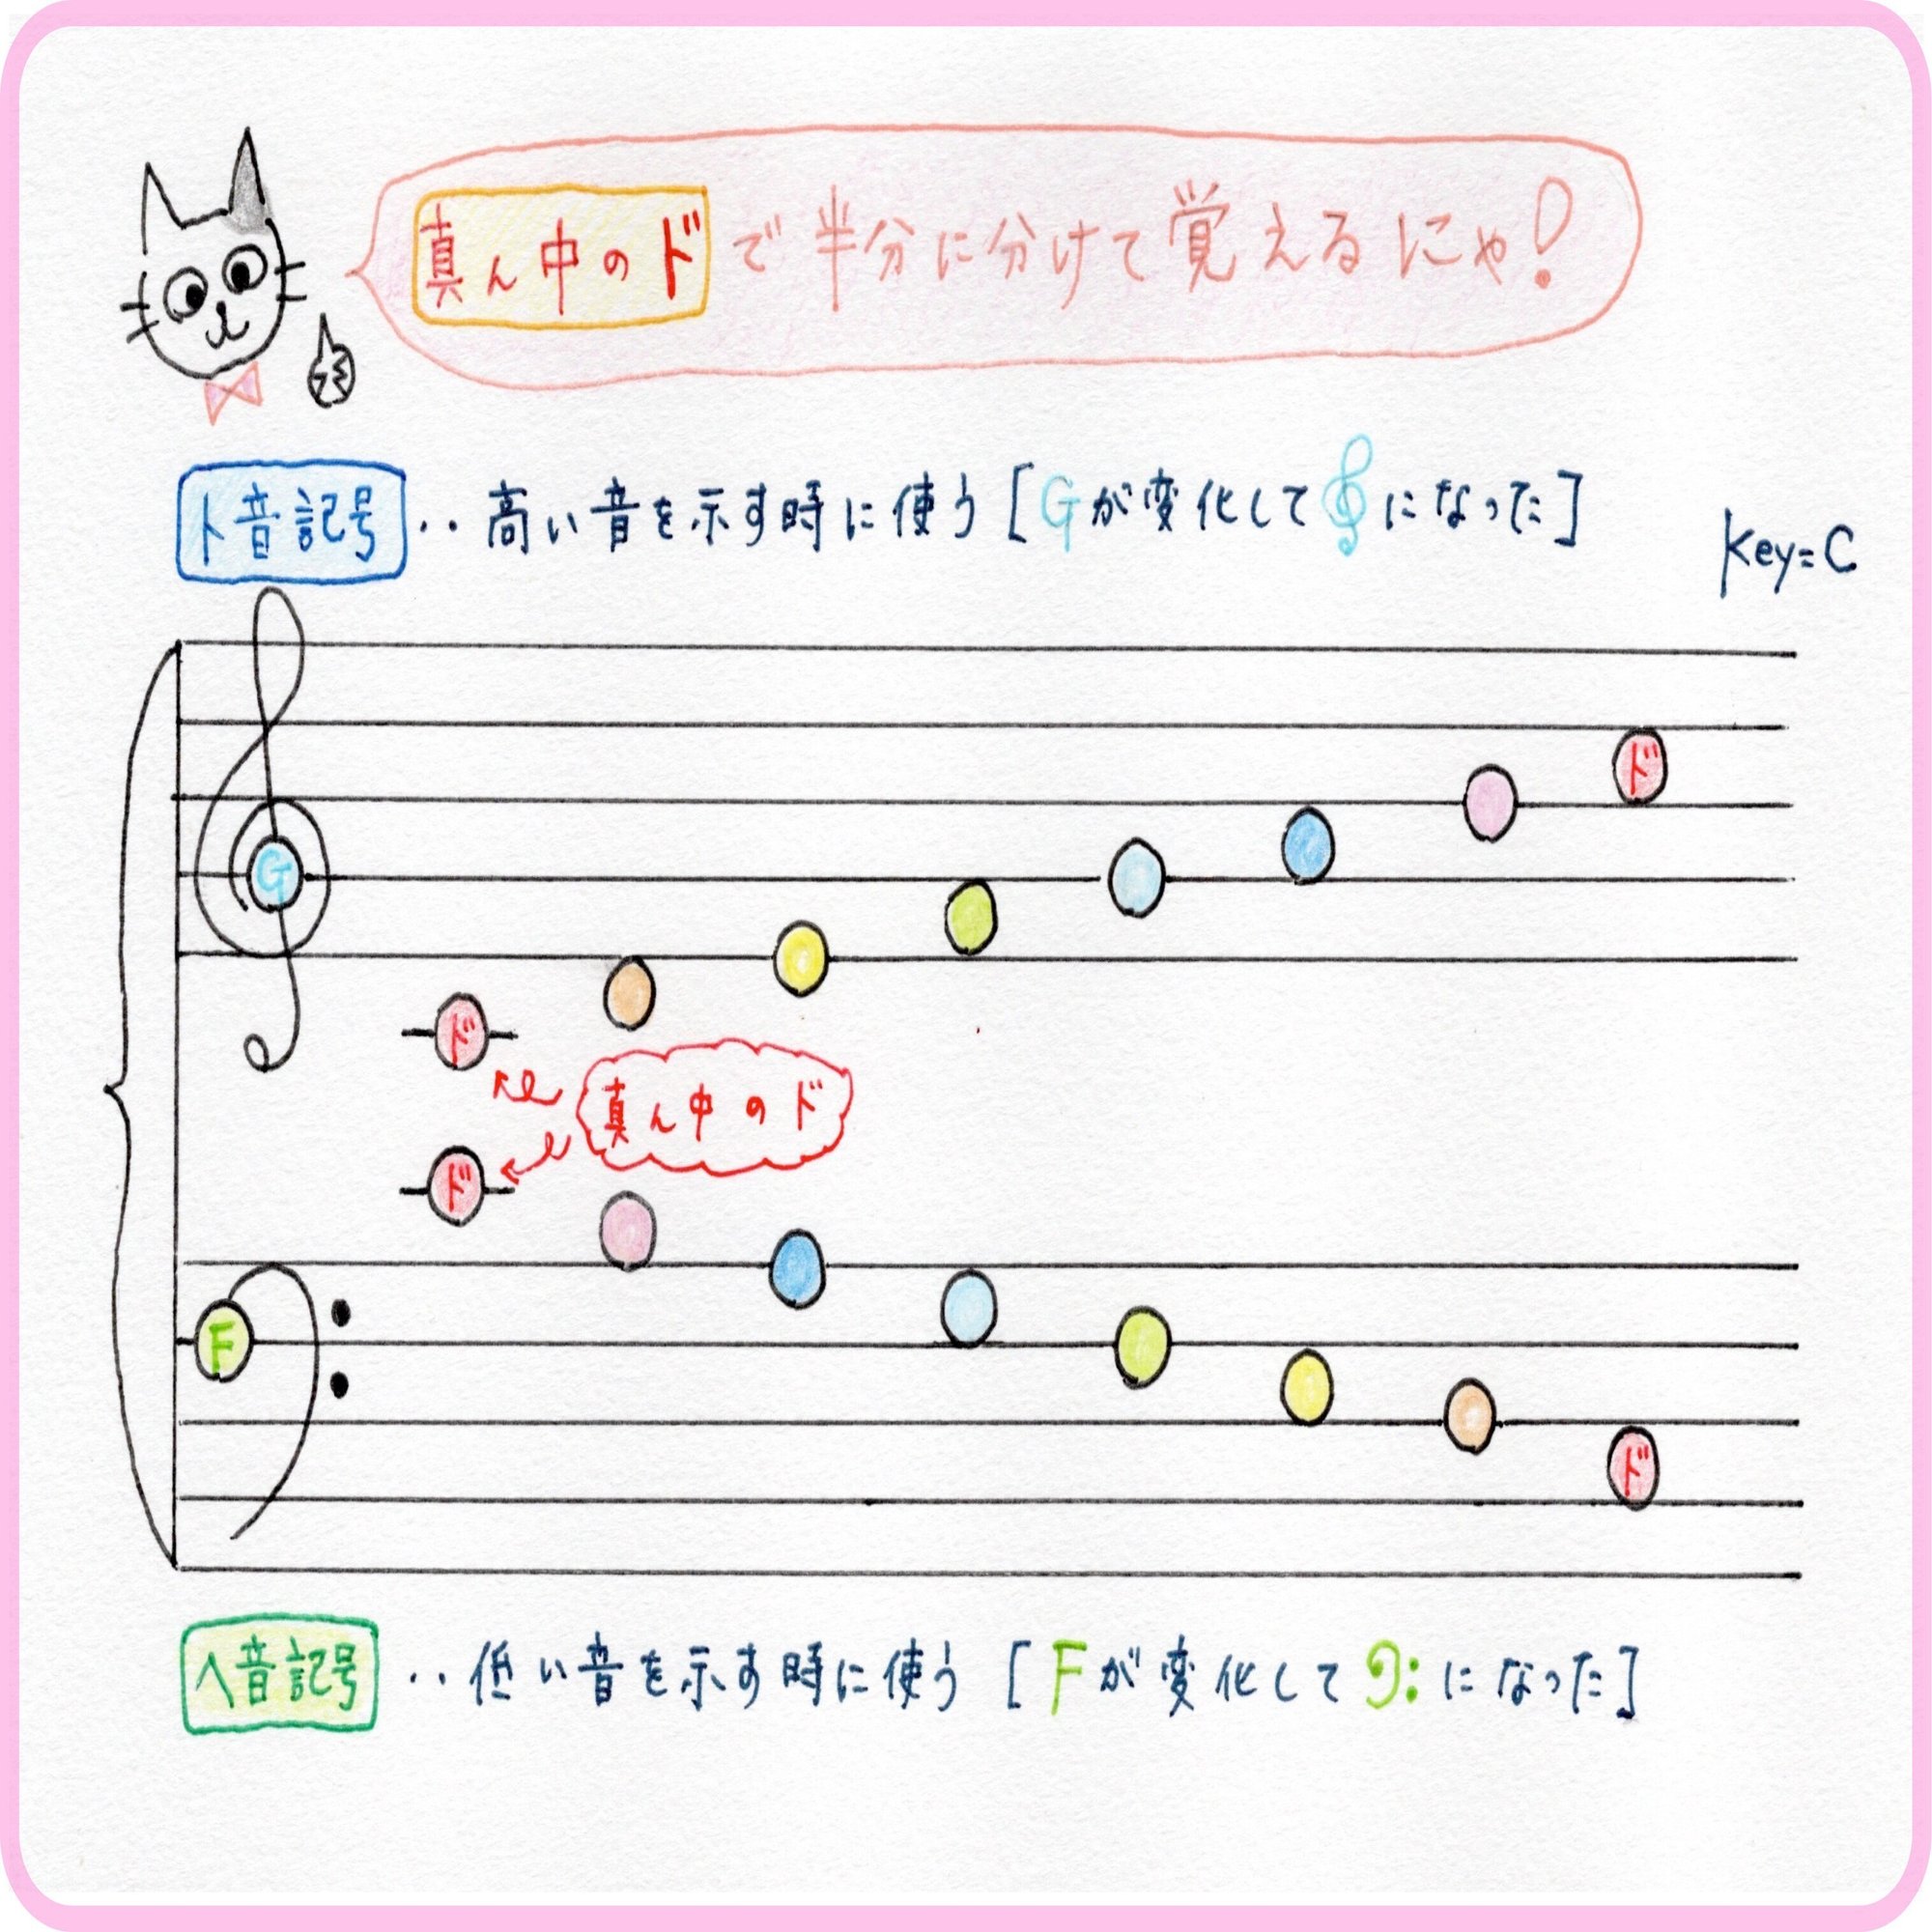 真ん中のドで半分に分けて覚えるにゃ!
ト音記号‥高い音を示す時に使う[Gが変化して𝄞になった]
Key=C
ド
G
ド
真ん中のド
ド
F
ド
ヘ音記号‥低い音を示す時に使う[Fが変化して𝄢になった]